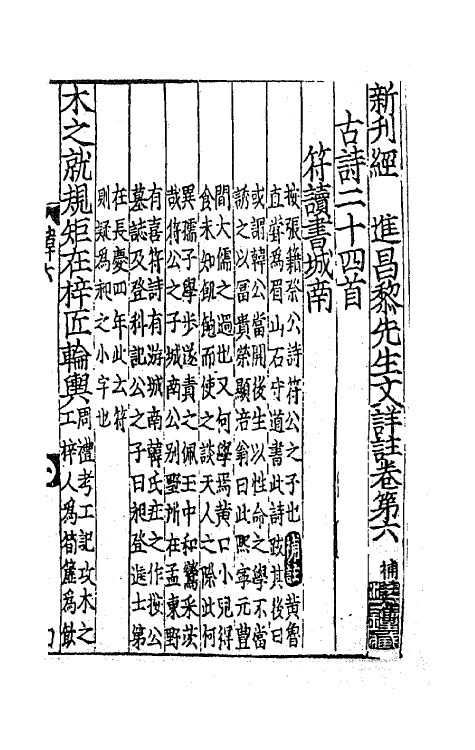 新刊經 進昌黎先生文詳註卷第六 補註
古詩二十四首
符讀書城南
按張籍祭公詩符公之子也補註黃魯
直嘗爲眉山石守道書此詩跋其後曰
或謂韓公當開後生以性命之學不當
誘之以冨貴榮顯涪翁曰此熙寧元豐
間大儒之過也又何學焉黄口小兒得
食未知飢飽而使之談天人之際此何
異孺子學步遂責之佩玉中和鸞采茨
哉符公之子城南公別墅所在孟東野
有喜符詩有游城南韓氏庄之作按公
墓誌及登科記公之子曰昶登進士第
在長慶四年此云符
則疑爲昶之小字也
木之就規矩在梓匠輪輿
周禮考工記攻木之
工梓人爲筍簴爲飲
韓六